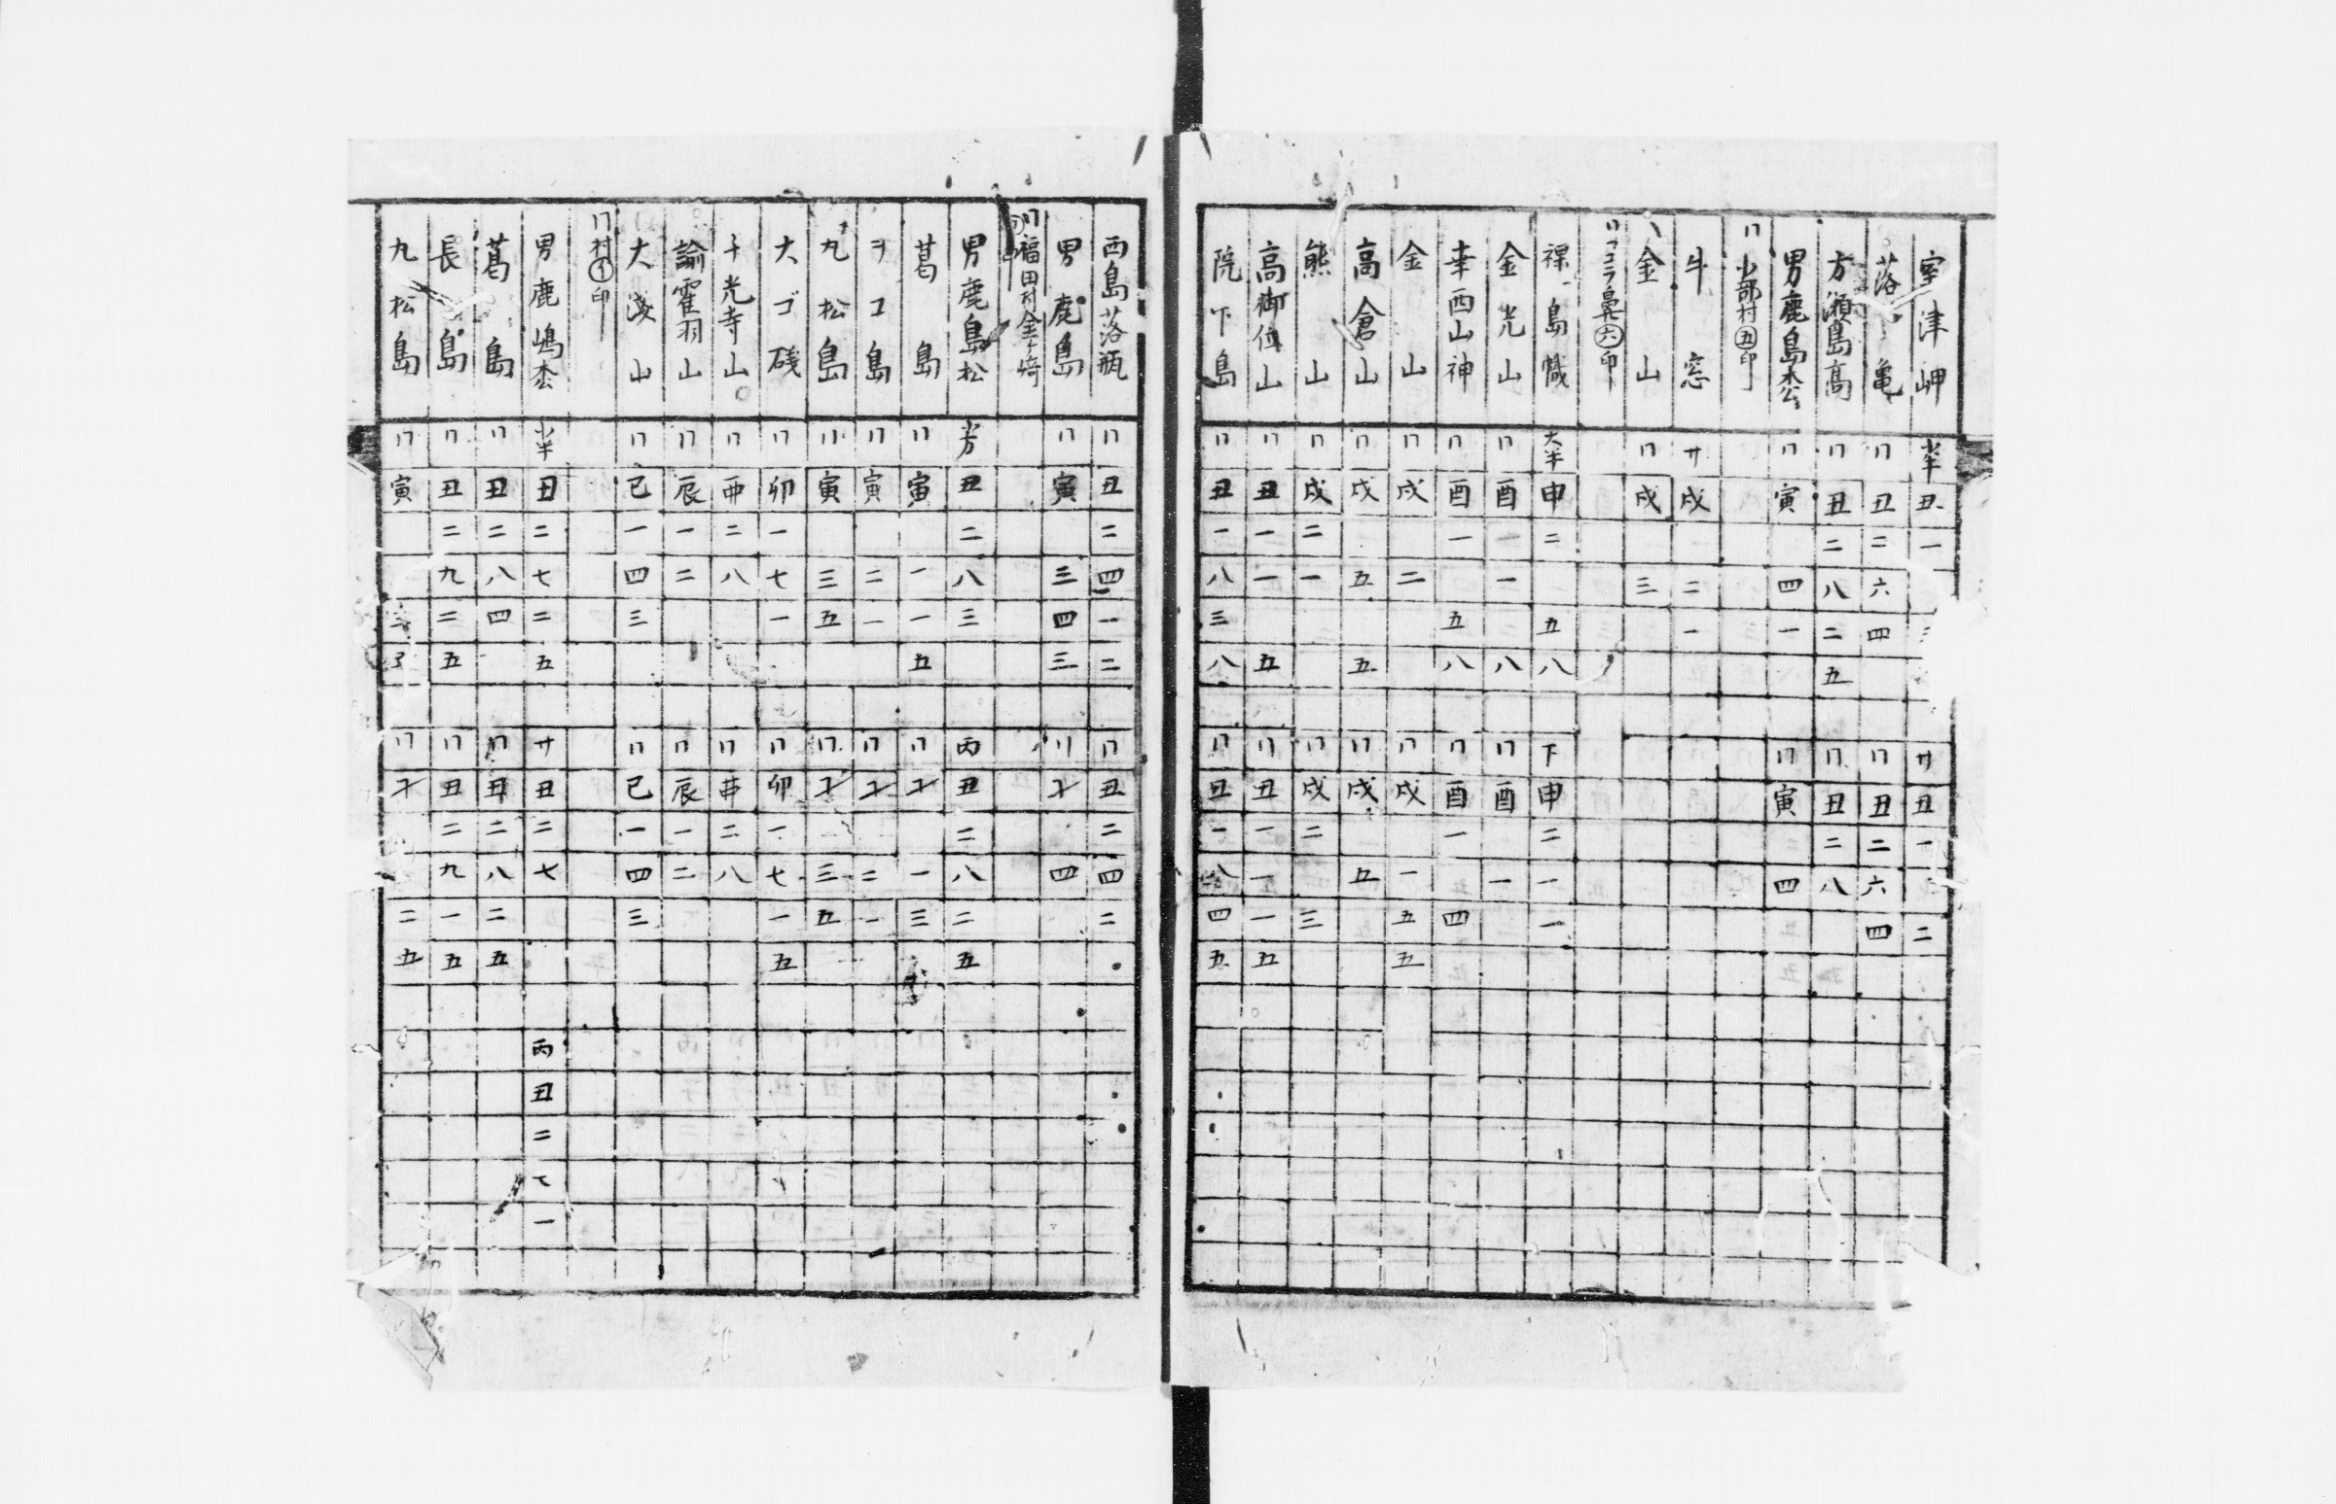 室津岬 小半 丑 一 廿 丑 一 二
落亀 〃 丑 二 六 四 〃 丑 二 六 四
方瀬島高 〃 丑 二 八 二 五 〃 丑 二 八
男鹿島松 〃 寅 四 一 〃 寅 四
〃小部村㊄印
牛窓 廿 戌 二 一
金山 〃 戌 三
〃コエラ鼻㊅印
裸島幟 大半 申 二 五 八 下 申 二 一 一
金光山 〃 酉 一 八 〃 酉 一
幸西山神 〃 酉 一 五 八 〃 酉 一 四
金山 〃 戌 二 〃 戌 一 五 五
高倉山 〃 戌 五 五 〃 戌 五
熊山 〃 戌 二 一 〃 戌 二 三
高御位山 〃 丑 一 一 五 〃 丑 一 一 一 五
院下島 〃 丑 一 八 三 八 〃 丑 一 八 四 五
西島落瓶 〃 丑 二 四 一 二 〃 丑 二 四 二
男鹿島 〃 寅 三 四 三 〃 才 四
〃福田村金ヶ崎
男鹿島松 小方 丑 二 八 三 丙 丑 二 八 二 五
葛島 〃 寅 一 一 五 〃 才 一 三
ヲコ島 〃 寅 二 一 〃 才 二 一
丸松島 〃 寅 三 五 〃 才 三 五
大ゴ磯 〃 卯 一 七 一 〃 卯 一 七 一 五
千光寺山 〃 丑 二 八 〃 丑 二 八
諭霍羽山 〃 辰 一 二 〃 辰 一 二
大浅山 〃 巳 一 四 三 〃 巳 一 四 三
〃村㊀印
男鹿嶋松 小半 丑 二 七 二 五 廿 丑 二 七 丙 丑 二 七 一
葛島 〃 丑 二 八 四 〃 丑 二 八 二 五
長島 〃 丑 二 九 二 五 〃 丑 二 九 一 五
九松島 〃 寅 三 〃 才 二 五